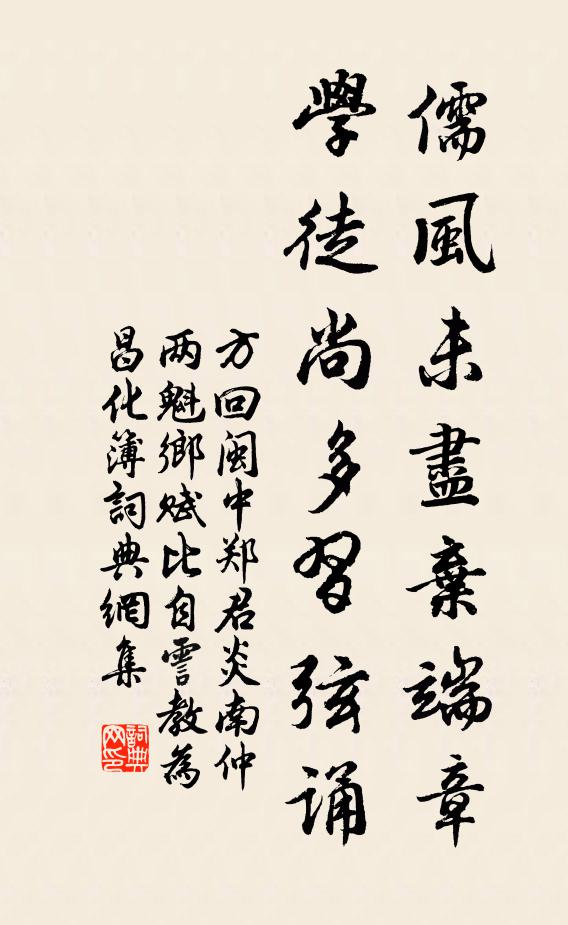 儒風未盡棄端章
學徒尚多習弦诵
方回閩中郑君炎南仲
两魁鄉赋比自霅教為
昌化簿詞典網集
詞典网印